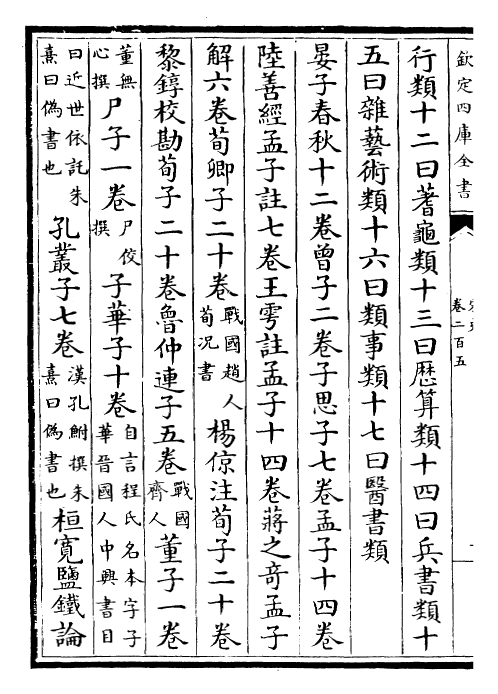 欽定四庫全書
卷二百五
行類十二曰蓍龜類十三曰厯算類十四曰兵書類十
五曰雜藝術類十六曰類事類十七曰醫書類
晏子春秋十二卷曾子二卷子思子七卷孟子十四卷
陸善經孟子註七卷王雱註孟子十四卷蔣之奇孟子
解六卷荀卿子二十卷戰國趙人荀况書楊倞注荀子二十卷
黎錞校勘荀子二十卷魯仲連子五卷戰國齊人董子一卷
董無心撰尸子一卷尸佼撰子華子十卷自言程氏名本字子華晉國人中興書目
曰近世依託朱熹曰偽書也孔叢子七卷漢孔鮒撰朱熹曰偽書也桓寛鹽鐵論